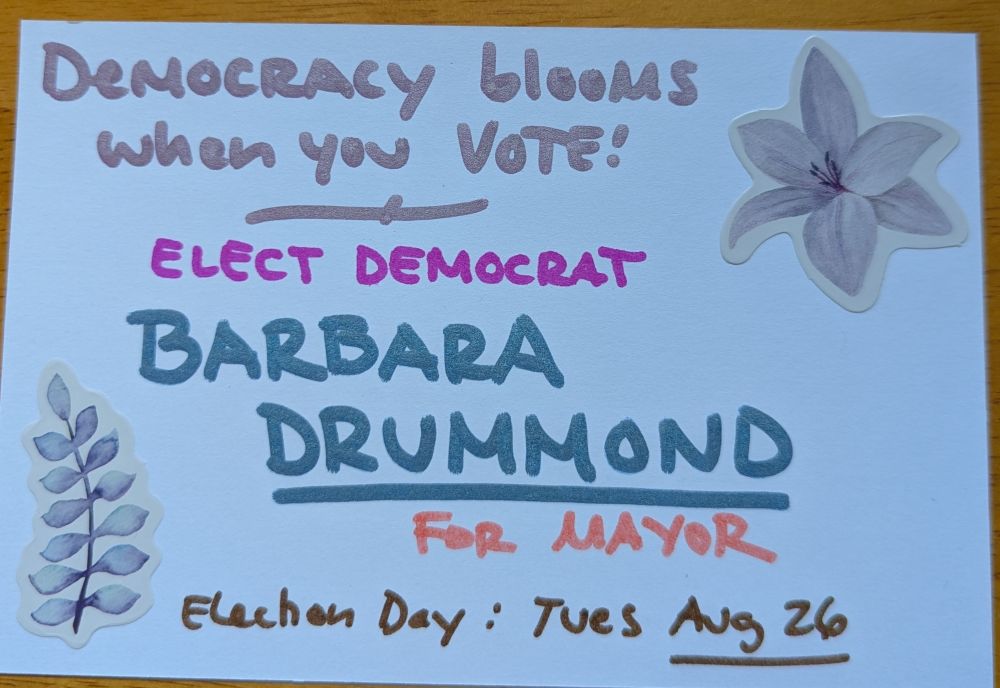 DEMOCRACY blooms
when you VOTE!
ELECT DEMOCRAT
BARBARA
DRUMMOND
FOR MAYOR
Election Day: Tues Aug 26